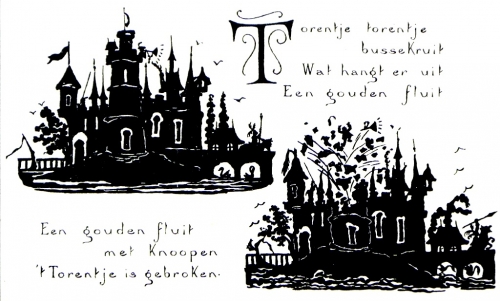 Torentje torentje
bussekruit
Wat hangt er uit
Een gouden fluit
Een gouden fluit
met Knoopen
't Torentje is gebroken.